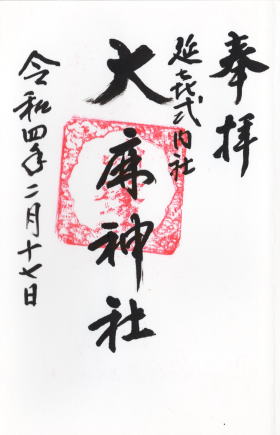 奉拝
延喜式内社
大麻神社
令和四年二月十七日